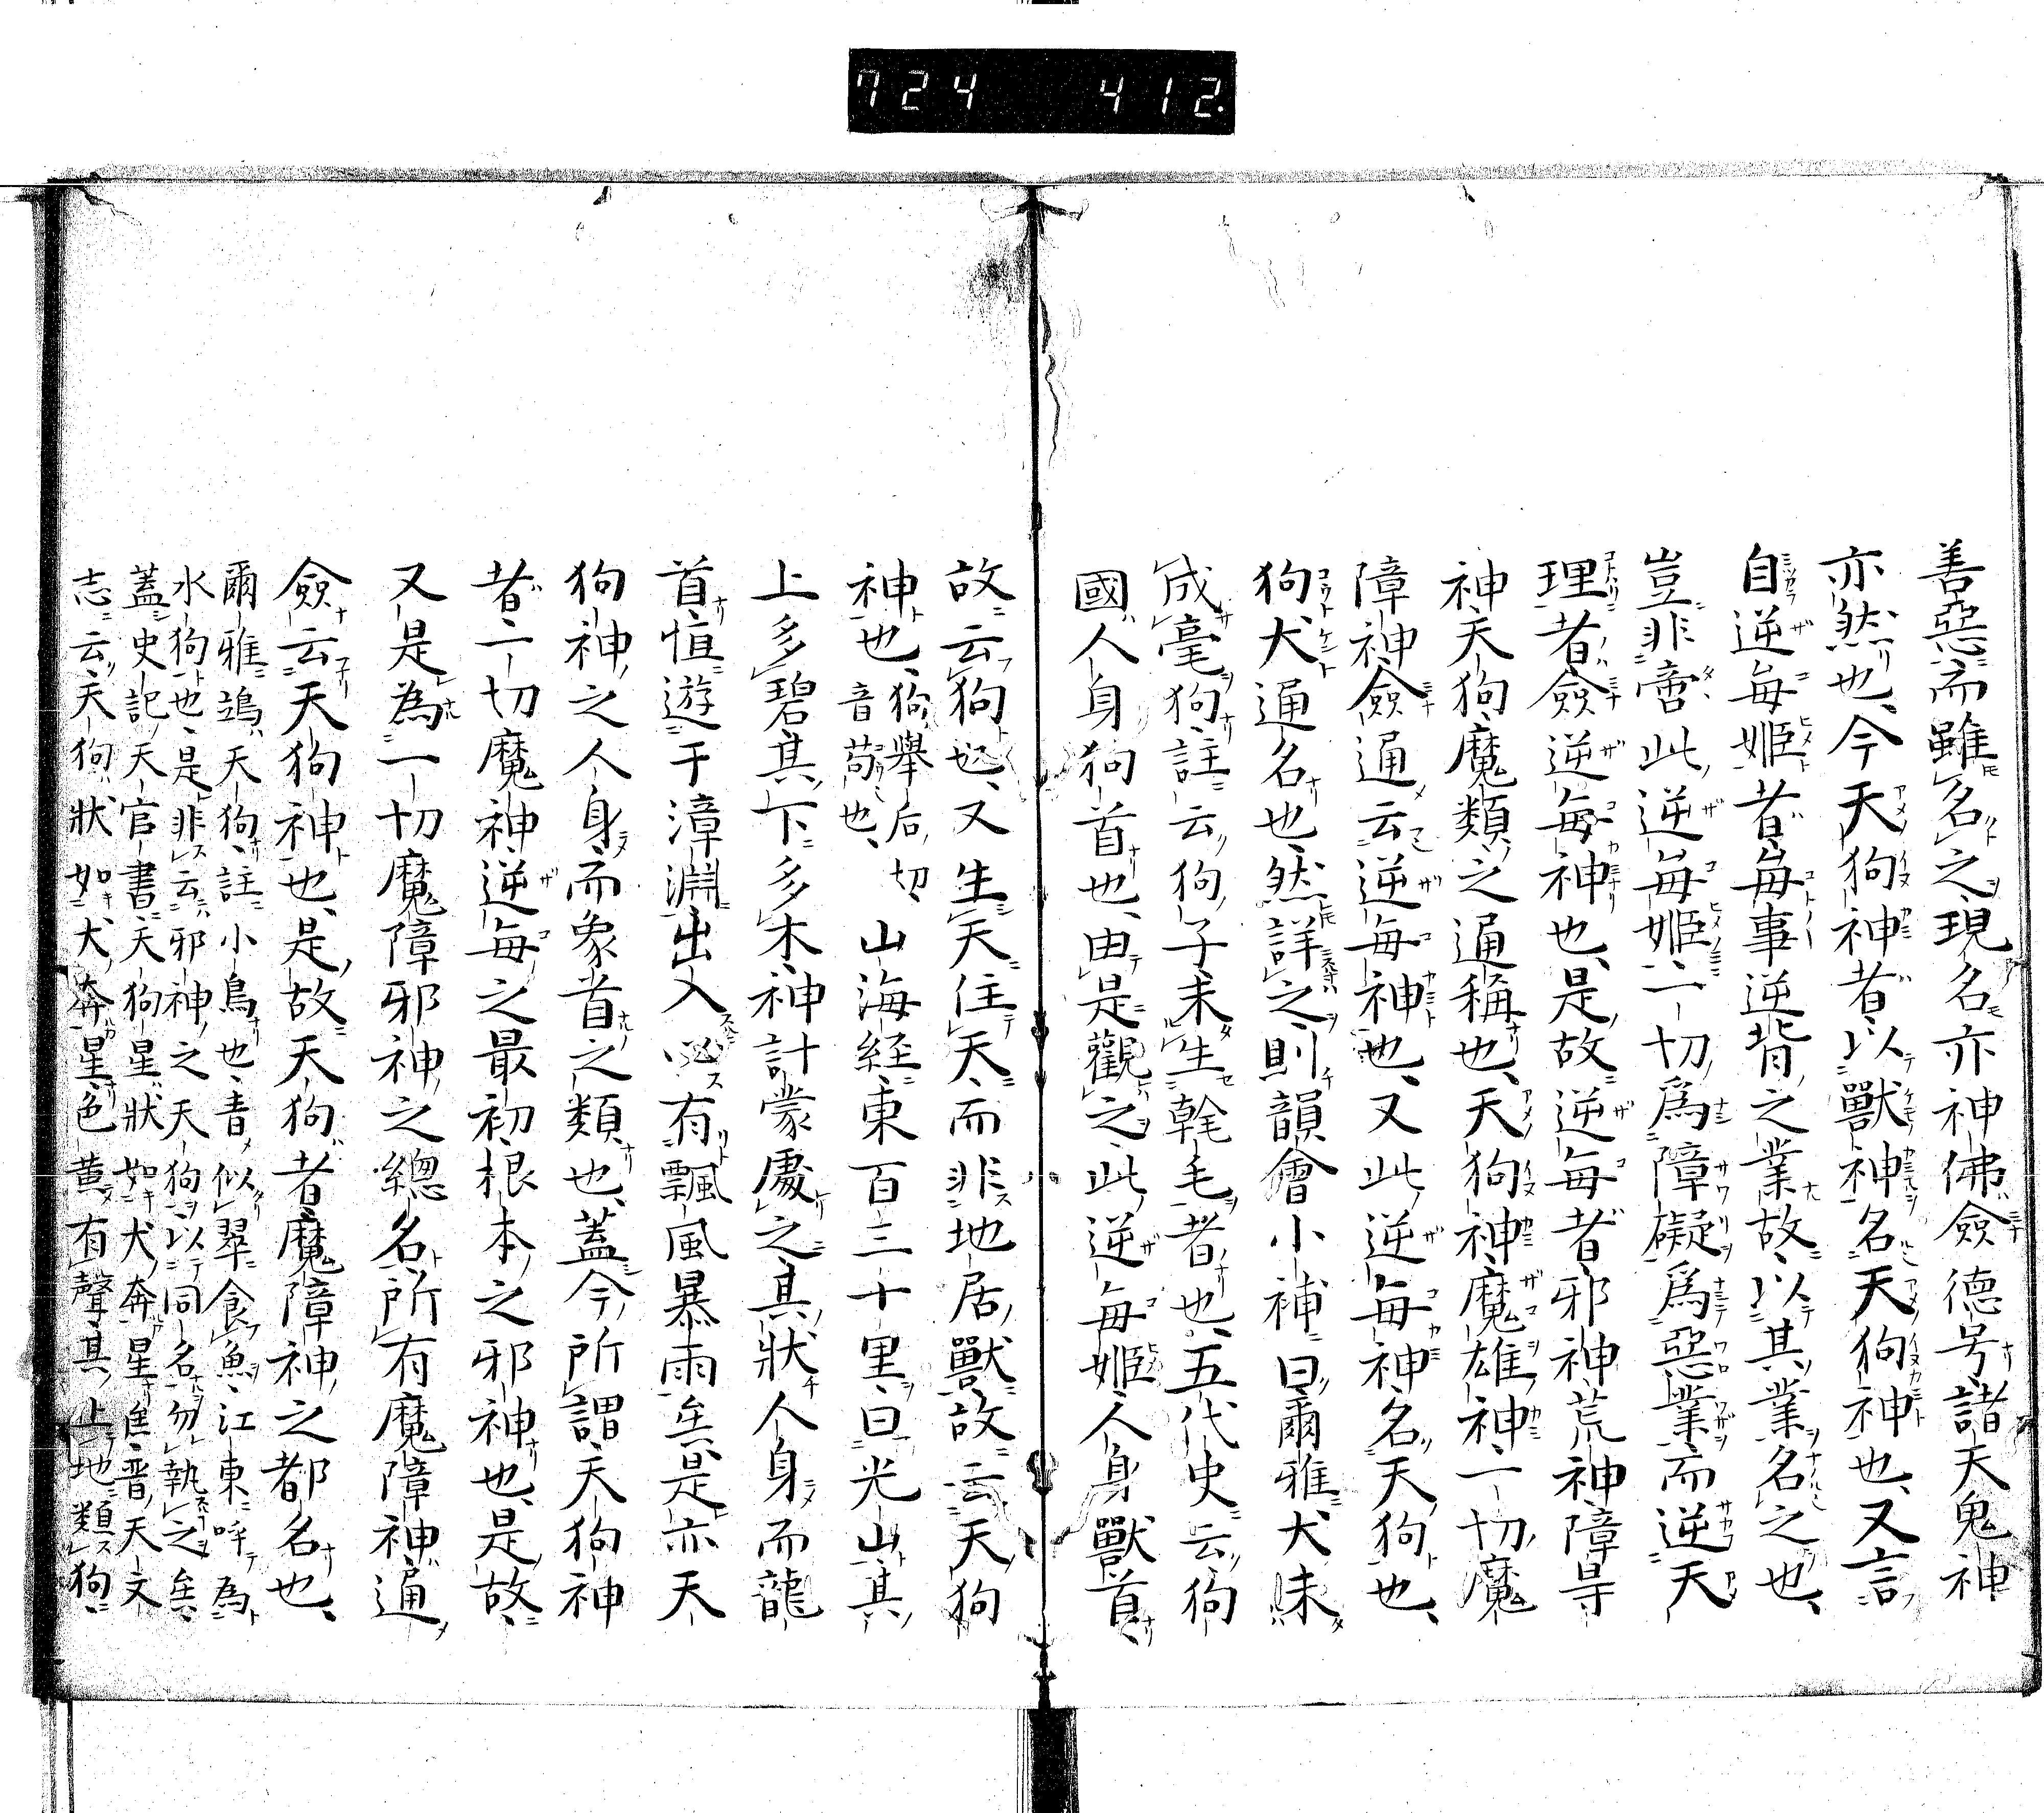 724 412.
善惡而雖名之現名亦神佛僉德号諸天鬼神
亦然也、今天狗神者、以獸神名天狗神也、又言
自逆每姬者、每事逆背之業故、以其業名之也、
豈非啻此逆每姬一切爲障礙爲惡業而逆天
理者、僉逆每神也、是故逆每者邪神荒神障㝵
神天狗魔類之通稱也、天狗神魔雄神一切魔
障神僉通云逆每神也、又此逆每神名天狗也、
狗犬通名也、然詳之則韻會小補曰爾雅犬未
成毫狗註云狗子未生乾毛者也、五代史云狗
國人身狗首也、由是觀之此逆每姬人身獸首
故云狗也、又生天住天而非地居獸故云天狗
神也、狗舉后切、音苟也、山海経東百三十里曰光山其
上多碧其下多木神計蒙處之其狀人身而龍
首恒遊于漳淵出入必有飄風暴雨矣是亦天
狗神之人身而象首之類也、蓋今所謂天狗神
者一切魔神逆每之最初根本之邪神也、是故
又是為一切魔障邪神之總名所有魔障神通
僉云天狗神也、是故天狗者魔障神之都名也、
爾雅鴗天狗註小鳥也、青似翠食魚江東呼為
水狗也、是非云邪神之天狗以同名勿執之矣
蓋史記天官書天狗星狀如犬奔星矣晋天文
志云天狗狀如犬奔星色黄有聲其止地類狗